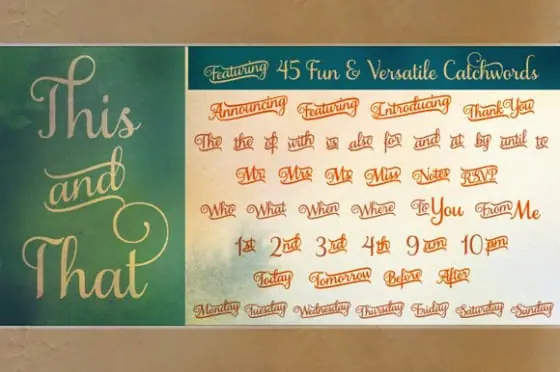 This
and
That
Featuring 45 Fun & Versatile Catchwords
Announcing Featuring Introducing Thank You
The the of with is also for and at by until to
Mr. Mrs Ms Miss Notes RSVP
Who What When Where To You From Me
1st 2nd 3rd 4th 9 am 10 pm
Today Tomorrow Before After
Monday Tuesday Wednesday Thursday Friday Saturday Sunday